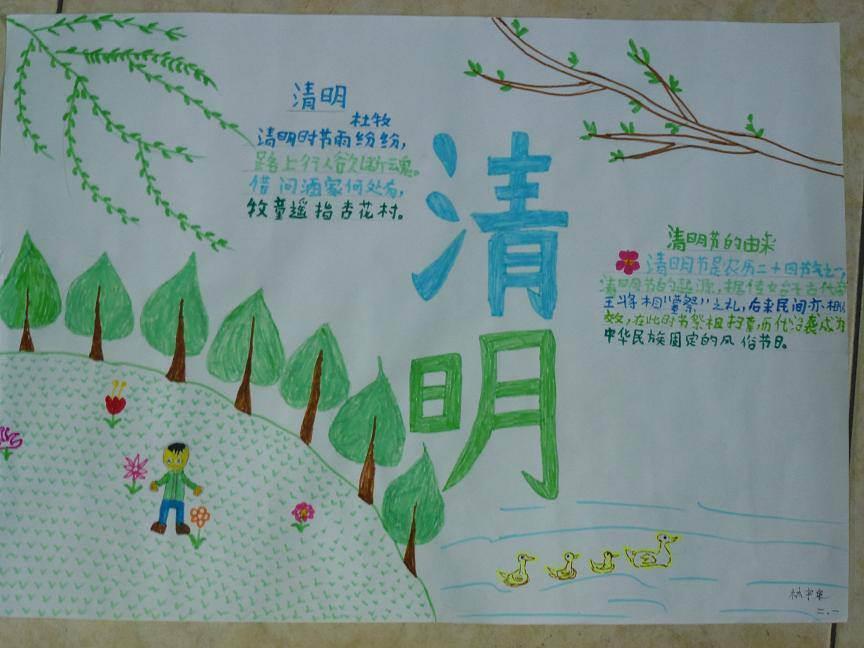 清明
杜牧
清明时节雨纷纷，
路上行人欲断魂。
借问酒家何处有，
牧童遥指杏花村。
清明
清明节的由来
清明节是农历二十四节气之一，
清明节的起源，据传始于古代帝
王将相“墓祭”之礼，后来民间亦相仿
效，在此时节祭祖扫墓，历代沿袭成为
中华民族固定的风俗节日。
二.一